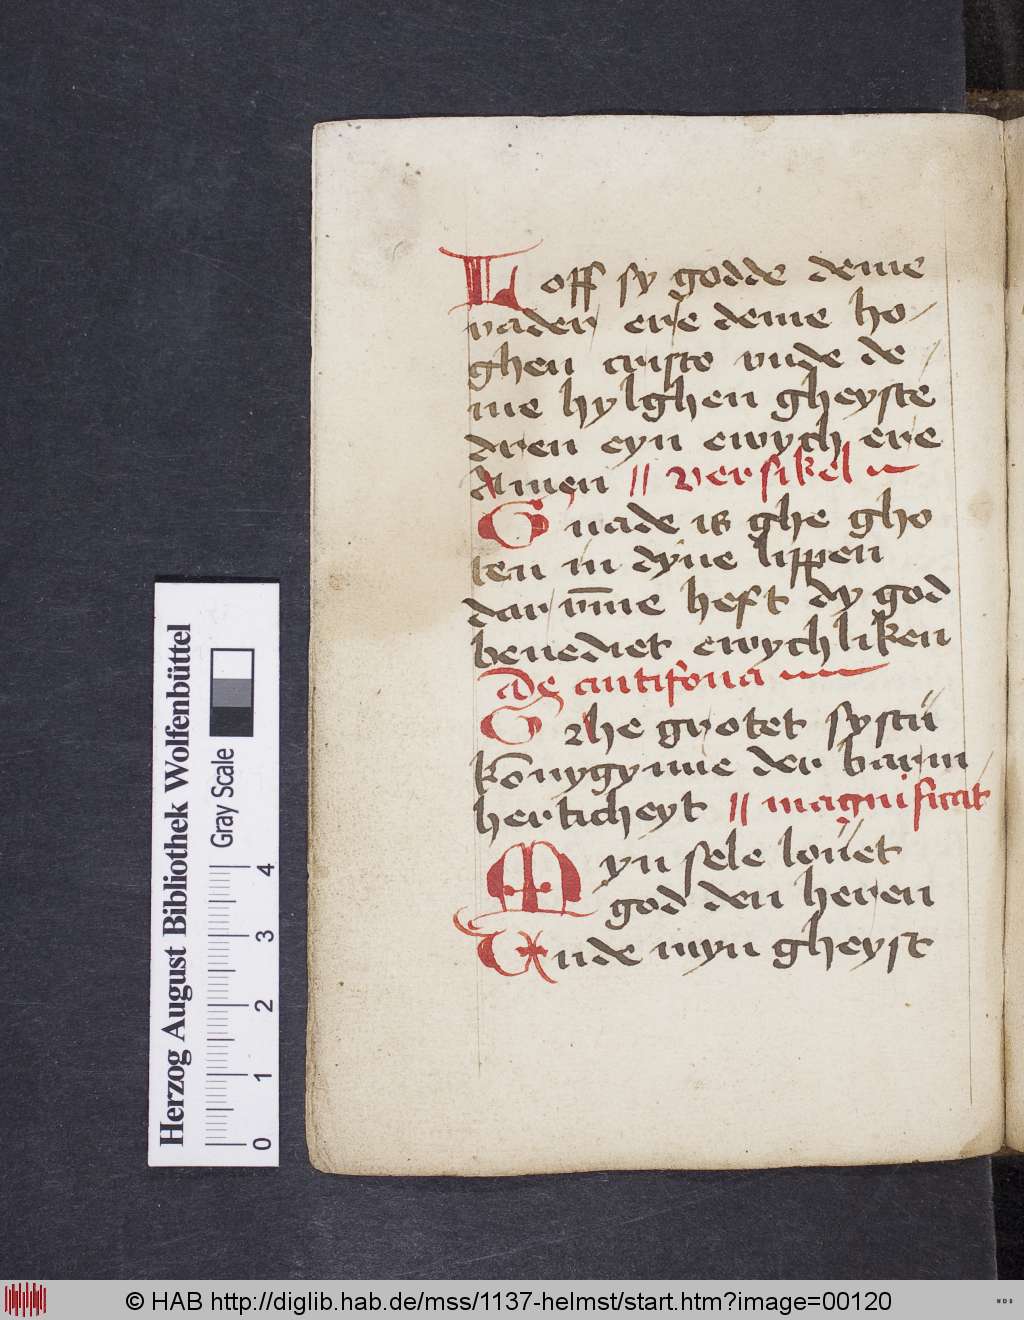 Loff sy godde deme
vader ere deme ho-
ghen cristo vnde de-
me hylghen gheyste
dren eyn ewych ere
Amen || versikel
Gnade is ghe gho
ten in dyne lippen
dar vm̅me heft dy god
benediet ewychliken
De antifona
Grhe grotet systu
ko̅nygynne der barm
herticheyt || magnificat
Myn sele louet
god den heren
Vnde myn gheyst
Herzog August Bibliothek Wolfenbüttel
Gray Scale
0 1 2 3 4
© HAB http://diglib.hab.de/mss/1137-helmst/start.htm?image=00120